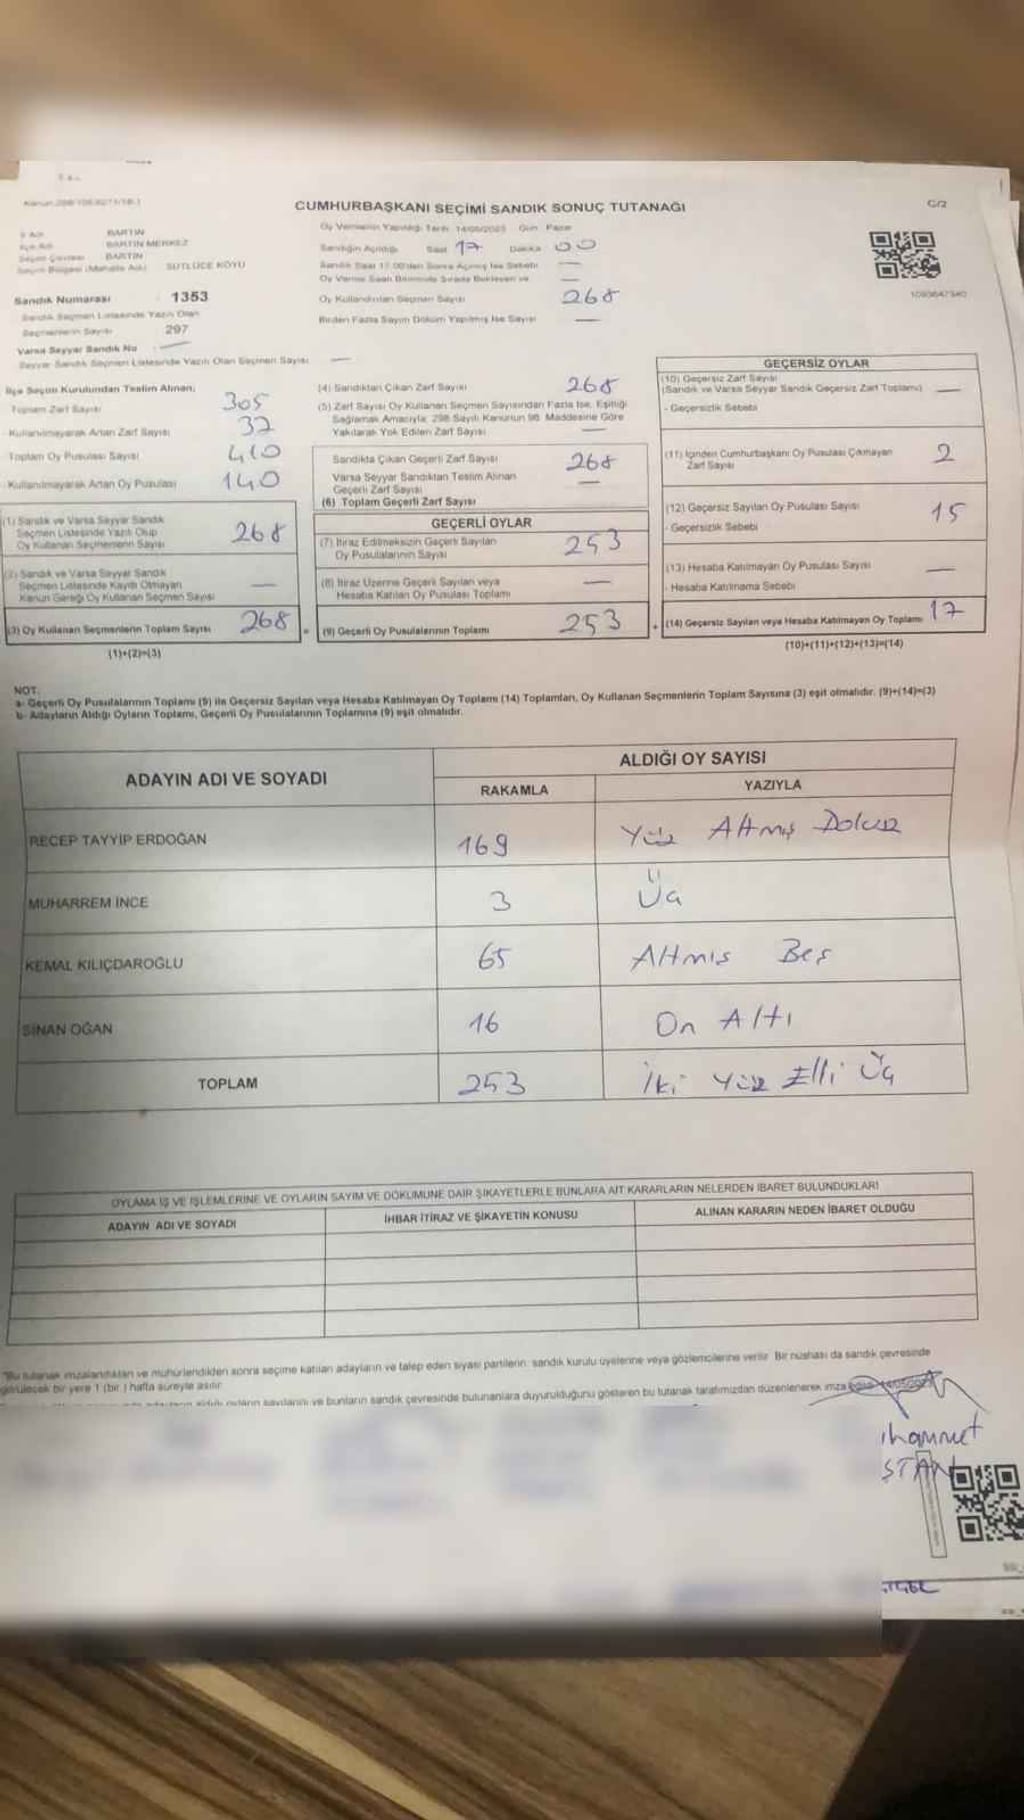 CUMHURBAŞKANI SEÇİMİ SANDIK SONUÇ TUTANAĞI
C/2
BARTIN
Oy Vermenin Yapıldığı Tarih 14/05/2023 Gün Pazar
İlçe Adı BARTIN MERKEZ
Sandığın Açıldığı Saat 17 Dakika 00
Seçim Çevresi BARTIN
Seçim Bölgesi (Mahalle Adı) SÜTLÜCE KÖYÜ
Sandık Saat 17.00'den Sonra Açılmış İse Sebebi —
Sandık Numarası : 1353
Oy Kullandırılan Seçmen Sayısı 268
1093647340
Sandık Seçmen Listesinde Yazılı Olan
Seçmenlerin Sayısı : 297
Birden Fazla Sayım Döküm Yapılmış İse Sayısı —
Varsa Seyyar Sandık No —
Seyyar Sandık Seçmen Listesinde Yazılı Olan Seçmen Sayısı —
İlçe Seçim Kurulundan Teslim Alınan;
Toplam Zarf Sayısı 305
Kullanılmayarak Artan Zarf Sayısı 37
Toplam Oy Pusulası Sayısı 410
Kullanılmayarak Artan Oy Pusulası 140
(1) Sandık ve Varsa Seyyar Sandık
Seçmen Listesinde Yazılı Olup
Oy Kullanan Seçmenlerin Sayısı 268
(2) Sandık ve Varsa Seyyar Sandık
Seçmen Listesinde Kayıtlı Olmayan
Kanun Gereği Oy Kullanan Seçmen Sayısı —
(3) Oy Kullanan Seçmenlerin Toplam Sayısı 268
(1)+(2)=(3)
(4) Sandıktan Çıkan Zarf Sayısı 268
(5) Zarf Sayısı Oy Kullanan Seçmen Sayısından Fazla İse, Eşitliği
Sağlamak Amacıyla; 298 Sayılı Kanunun 98. Maddesine Göre
Yakılarak Yok Edilen Zarf Sayısı —
Sandıkta Çıkan Geçerli Zarf Sayısı 268
Varsa Seyyar Sandıktan Teslim Alınan
Geçerli Zarf Sayısı —
(6) Toplam Geçerli Zarf Sayısı
GEÇERLİ OYLAR
(7) İtiraz Edilmeksizin Geçerli Sayılan
Oy Pusulalarının Sayısı 253
(8) İtiraz Üzerine Geçerli Sayılan veya
Hesaba Katılan Oy Pusulası Toplamı —
= (9) Geçerli Oy Pusulalarının Toplamı 253
GEÇERSİZ OYLAR
(10) Geçersiz Zarf Sayısı
(Sandık ve Varsa Seyyar Sandık Geçersiz Zarf Toplamı) —
- Geçersizlik Sebebi
(11) İçinden Cumhurbaşkanı Oy Pusulası Çıkmayan
Zarf Sayısı 2
(12) Geçersiz Sayılan Oy Pusulası Sayısı 15
- Geçersizlik Sebebi
(13) Hesaba Katılmayan Oy Pusulası Sayısı —
- Hesaba Katılmama Sebebi
+ (14) Geçersiz Sayılan veya Hesaba Katılmayan Oy Toplamı 17
(10)+(11)+(12)+(13)=(14)
NOT:
a- Geçerli Oy Pusulalarının Toplamı (9) ile Geçersiz Sayılan veya Hesaba Katılmayan Oy Toplamı (14) Toplamları, Oy Kullanan Seçmenlerin Toplam Sayısına (3) eşit olmalıdır. (9)+(14)=(3)
b- Adayların Aldığı Oyların Toplamı, Geçerli Oy Pusulalarının Toplamına (9) eşit olmalıdır.
ADAYIN ADI VE SOYADI
ALDIĞI OY SAYISI
RAKAMLA YAZIYLA
RECEP TAYYİP ERDOĞAN 169 Yüz Altmış Dokuz
MUHARREM İNCE 3 Üç
KEMAL KILIÇDAROĞLU 65 Altmıs Beş
SİNAN OĞAN 16 On Altı
TOPLAM 253 İki Yüz Elli Üç
OYLAMA İŞ VE İŞLEMLERİNE VE OYLARIN SAYIM VE DÖKÜMÜNE DAİR ŞİKAYETLERLE BUNLARA AİT KARARLARIN NELERDEN İBARET BULUNDUKLARI
ADAYIN ADI VE SOYADI İHBAR İTİRAZ VE ŞİKAYETİN KONUSU ALINAN KARARIN NEDEN İBARET OLDUĞU
*Bu tutanak imzalandıktan ve mühürlendikten sonra seçime katılan adayların ve talep eden siyasi partilerin; sandık kurulu üyelerine veya gözlemcilerine verilir. Bir nüshası da sandık çevresinde
görülecek bir yere 1 (bir ) hafta süreyle asılır.
oyların sayılarını ve bunların sandık çevresinde bulunanlara duyurulduğunu gösteren bu tutanak tarafımızdan düzenlenerek imza
ihammet
STAN